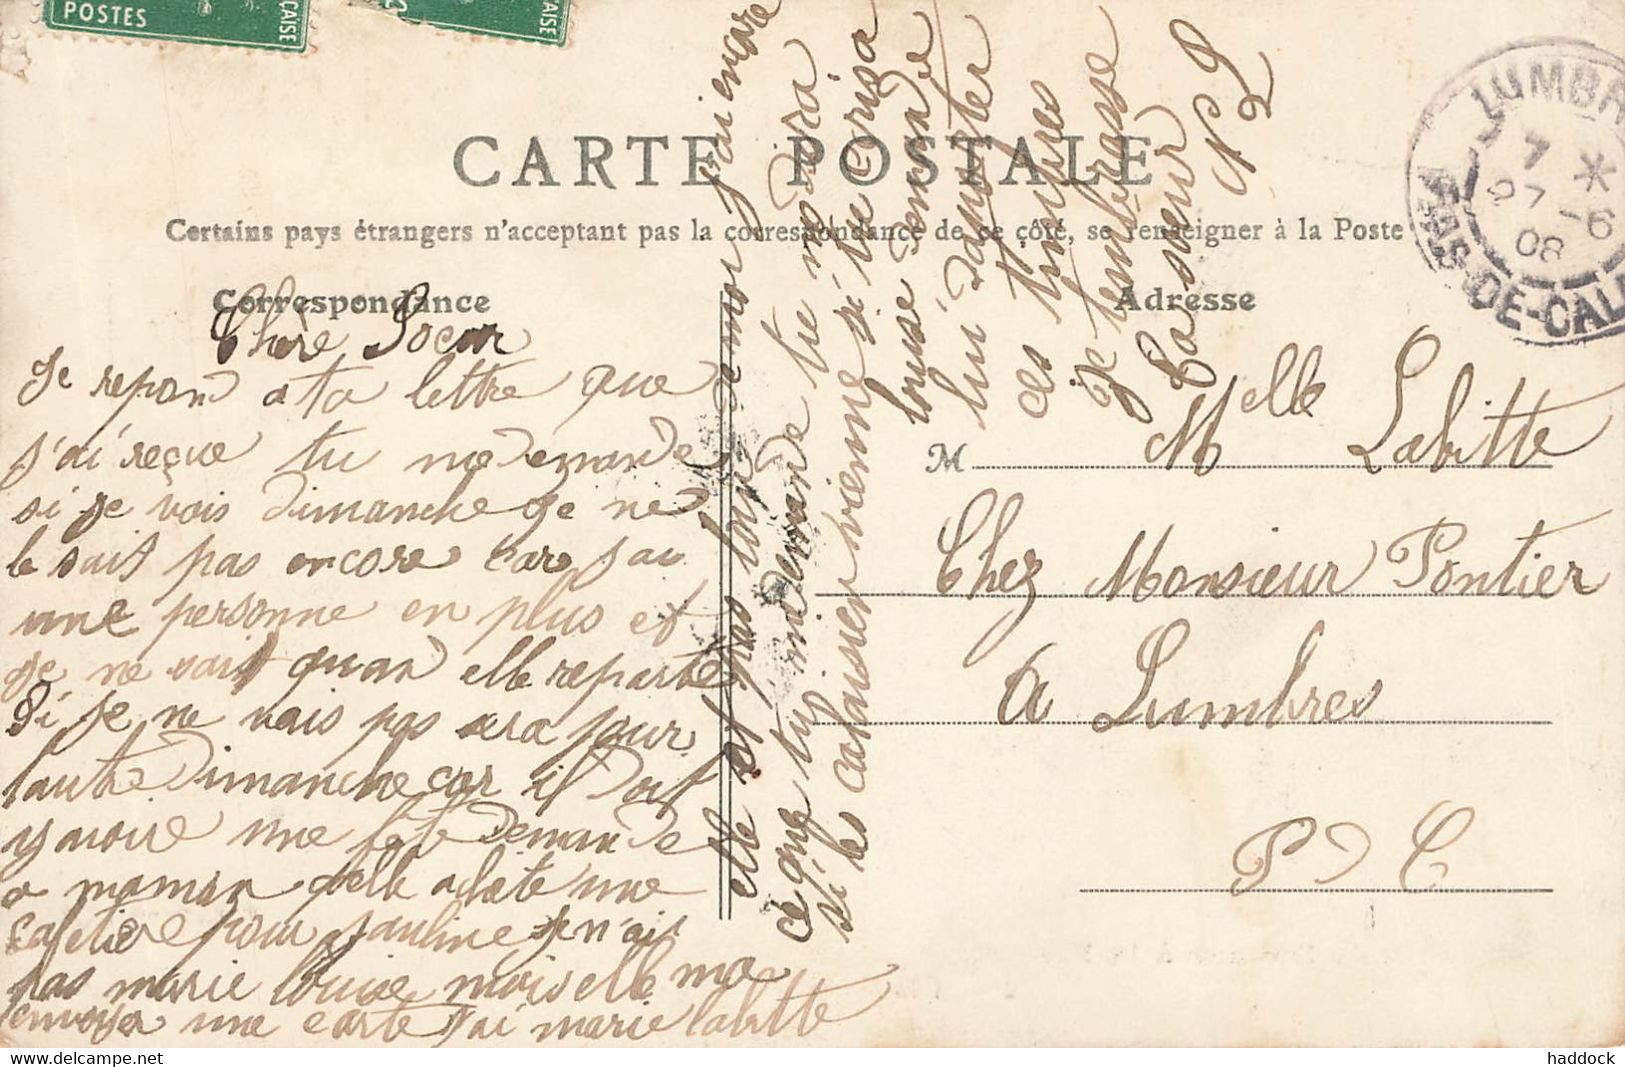 POSTES
ÇAISE
ÇAISE
CARTE POSTALE
Certains pays étrangers n'acceptant pas la correspondance de ce côté, se renseigner à la Poste
Correspondance
Adresse
LUMBR
7 *
27 -6
08
PAS-DE-CAL
Chère Soeur
Je repond a ta lettre que
j'ai reçue tu me demande
si je vois dimanche je ne
le sait pas encore car j'ai
une personne en plus et
je ne sait quand elle reparte
Si je ne vais pas sera pour
l'autre dimanche car il doit
y avoire une demande
a maman qelle achete une
cafetiere pour pauline je n'ait
pas marie louise mais elle ma
envoyer une carte j'ai marie labitte
elle est pas louise a moi j'ai encore
ce que tu mi demande tu me dira
si les vienne si tu crira
louise demande
lui dapoter
ces timbres
Je tembrasse
Ta soeur
M
Melle Labitte
Chez Monsieur Pontier
a Lumbres
P D C
haddock